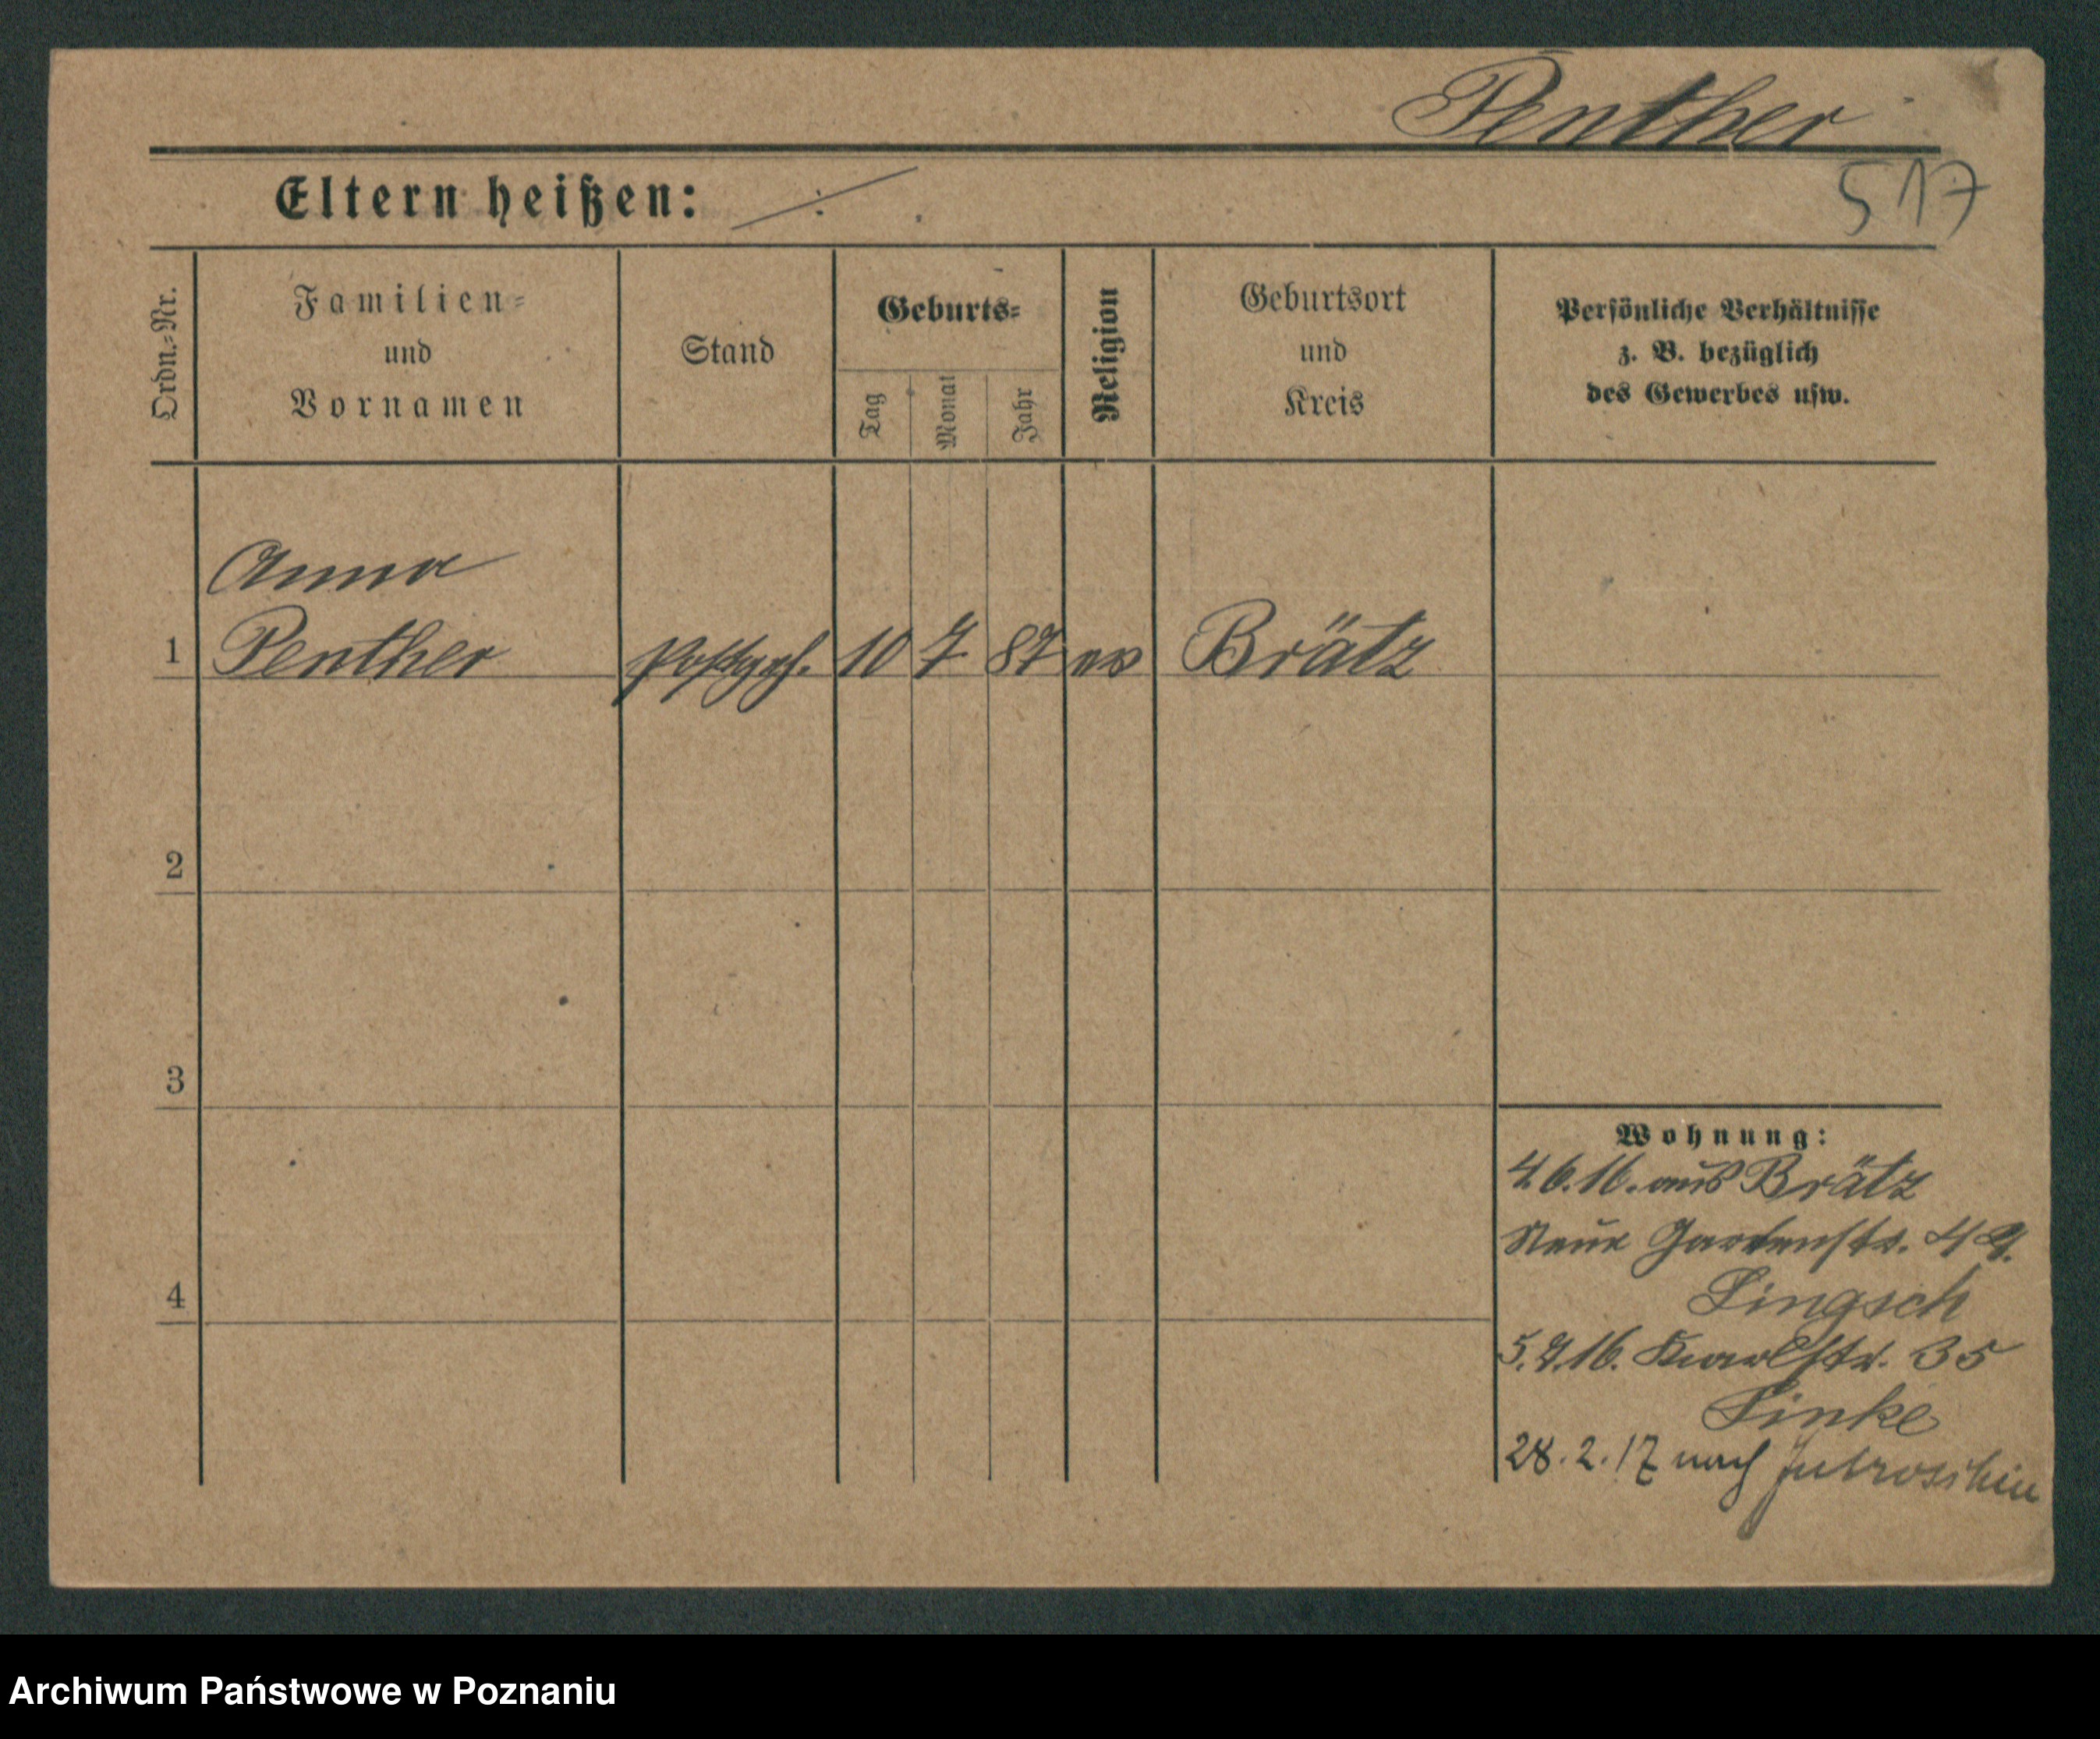 Penther
517
Eltern heißen: ⁒
Ordn.-Nr.
Familien-
und
Vornamen
Stand
Geburts-
Tag
Monat
Jahr
Religion
Geburtsort
und
Kreis
Persönliche Verhältnisse
z. B. bezüglich
des Gewerbes usw.
Anna
1 Penther Postgeh. 10 7 87 ev Brätz
2
3
4
Wohnung:
4.6.16. aus Brätz
Neue Gartenstr.
Lingsch
16. Karlstr. 35
Linke
28.2.17 nach Jutroschin
Archiwum Państwowe w Poznaniu